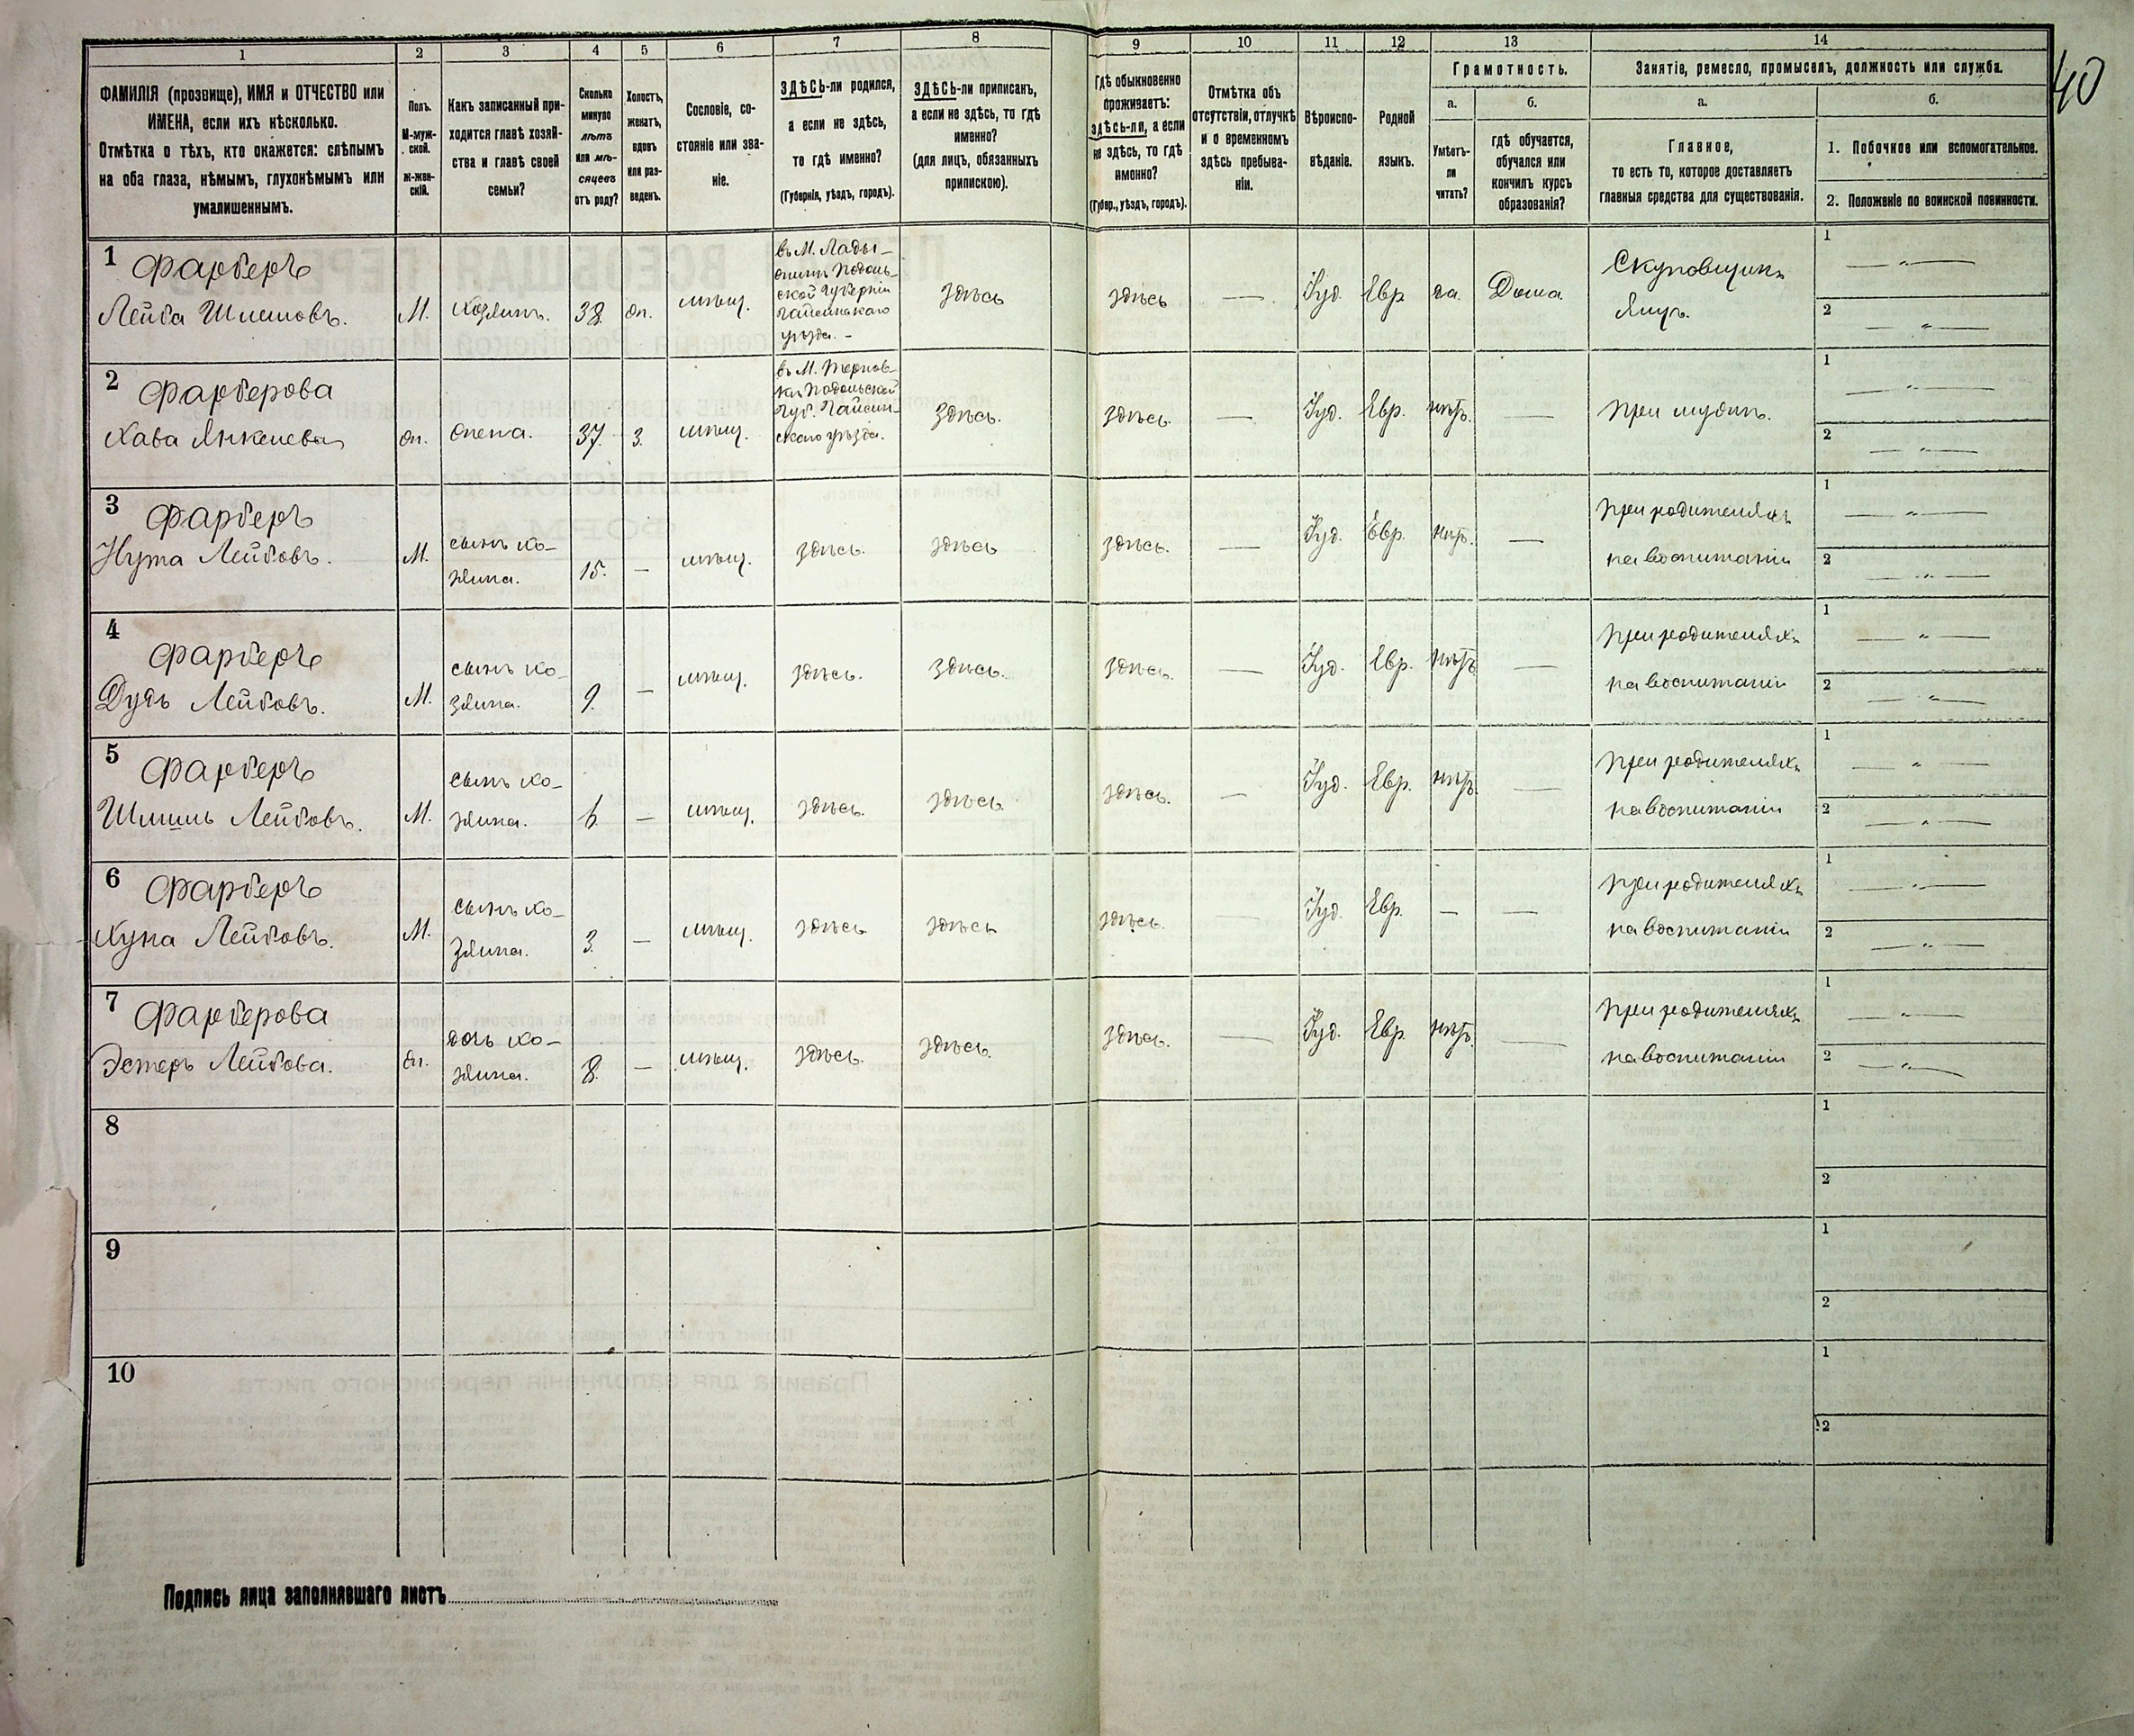 40
1 2 3 4 5 6 7 8 9 10 11 12 13 14
ФАМИЛІЯ (прозвище), ИМЯ и ОТЧЕСТВО или
ИМЕНА, если ихъ нѣсколько.
Отмѣтка о тѣхъ, кто окажется: слѣпымъ
на оба глаза, нѣмымъ, глухонѣмымъ или
умалишеннымъ.
Полъ.
М-муж-
ской.
Ж-жен-
скій.
Какъ записанный при-
ходится главѣ хозяй-
ства и главѣ своей
семьи?
Сколько
минуло
лѣтъ
или мѣ-
сяцевъ
отъ роду?
Холостъ,
женатъ,
вдовъ
или раз-
веденъ.
Сословіе, со-
стояніе или зва-
ніе.
ЗДѢСЬ-ли родился,
а если не здѣсь,
то гдѣ именно?
(Губернія, уѣздъ, городъ).
ЗДѢСЬ-ли приписанъ,
а если не здѣсь, то гдѣ
именно?
(для лицъ, обязанныхъ
припискою).
Гдѣ обыкновенно
проживаетъ:
здѣсь-ли, а если
не здѣсь, то гдѣ
именно?
(Губер., уѣздъ, городъ).
Отмѣтка объ
отсутствіи, отлучкѣ
и о временномъ
здѣсь пребыва-
ніи.
Вѣроиспо-
вѣданіе.
Родной
языкъ.
Грамотность.
а.
Умѣетъ-
ли
читать?
б.
гдѣ обучается,
обучался или
кончилъ курсъ
образованія?
Занятіе, ремесло, промыселъ, должность или служба.
а.
Главное,
то есть то, которое доставляетъ
главныя средства для существованія.
б.
1. Побочное или вспомогательное.
2. Положеніе по воинской повинности.
1 Фарберъ
Лейба Шлемовъ. М. Хозяинъ. 38 Жп. мѣщ.
въ М. Лады-
жинѣ Подоль-
ской губерніи
Гайсинскаго
уѣзда. -
здѣсь здѣсь — Іуд. Евр да. Дома.
Скуповщикъ
Яицъ.
1 — " —
2 — " —
2 Фарберова
Хава Янкелева Жп. Жена. 37 З. мѣщ.
въ М. Тернов-
кѣ Подольской
Губ. Гайсин-
скаго уѣзда.
здѣсь. здѣсь. — Іуд. Евр. нѣтъ. — при мужѣ.
1 — " —
2 — " —
3 Фарберъ
Нута Лейбовъ. М. сынъ хо-
зяина. 15. — мѣщ. здѣсь. здѣсь здѣсь. — Іуд. Евр. нѣтъ. —
при родителяхъ
на воспитаніи
1 — " —
2 — " —
4 Фарберъ
Дудь Лейбовъ. М. сынъ хо-
зяина. 9. — мѣщ. здѣсь. здѣсь. здѣсь. — Іуд. Евр. нѣтъ —
при родителяхъ
на воспитаніи
1 — " —
2 — " —
5 Фарберъ
Шмиль Лейбовъ. М. сынъ хо-
зяина. 6. — мѣщ. здѣсь. здѣсь. здѣсь. — Іуд. Евр. нѣтъ —
при родителяхъ
на воспитаніи
1 — " —
2 — " —
6 Фарберъ
Хуна Лейбовъ. М. сынъ хо-
зяина. 3. — мѣщ. здѣсь здѣсь здѣсь. — Іуд. Евр. — —
при родителяхъ
на воспитаніи
1 — " —
2 — " —
7 Фарберова
Эстеръ Лейбова. Жп. дочь хо-
зяина. 8. — мѣщ. здѣсь. здѣсь. здѣсь. — Іуд. Евр. нѣтъ. —
при родителяхъ
на воспитаніи
1 — " —
2 — " —
8
1
2
9
1
2
10
1
2
Подпись лица заполнявшаго листъ